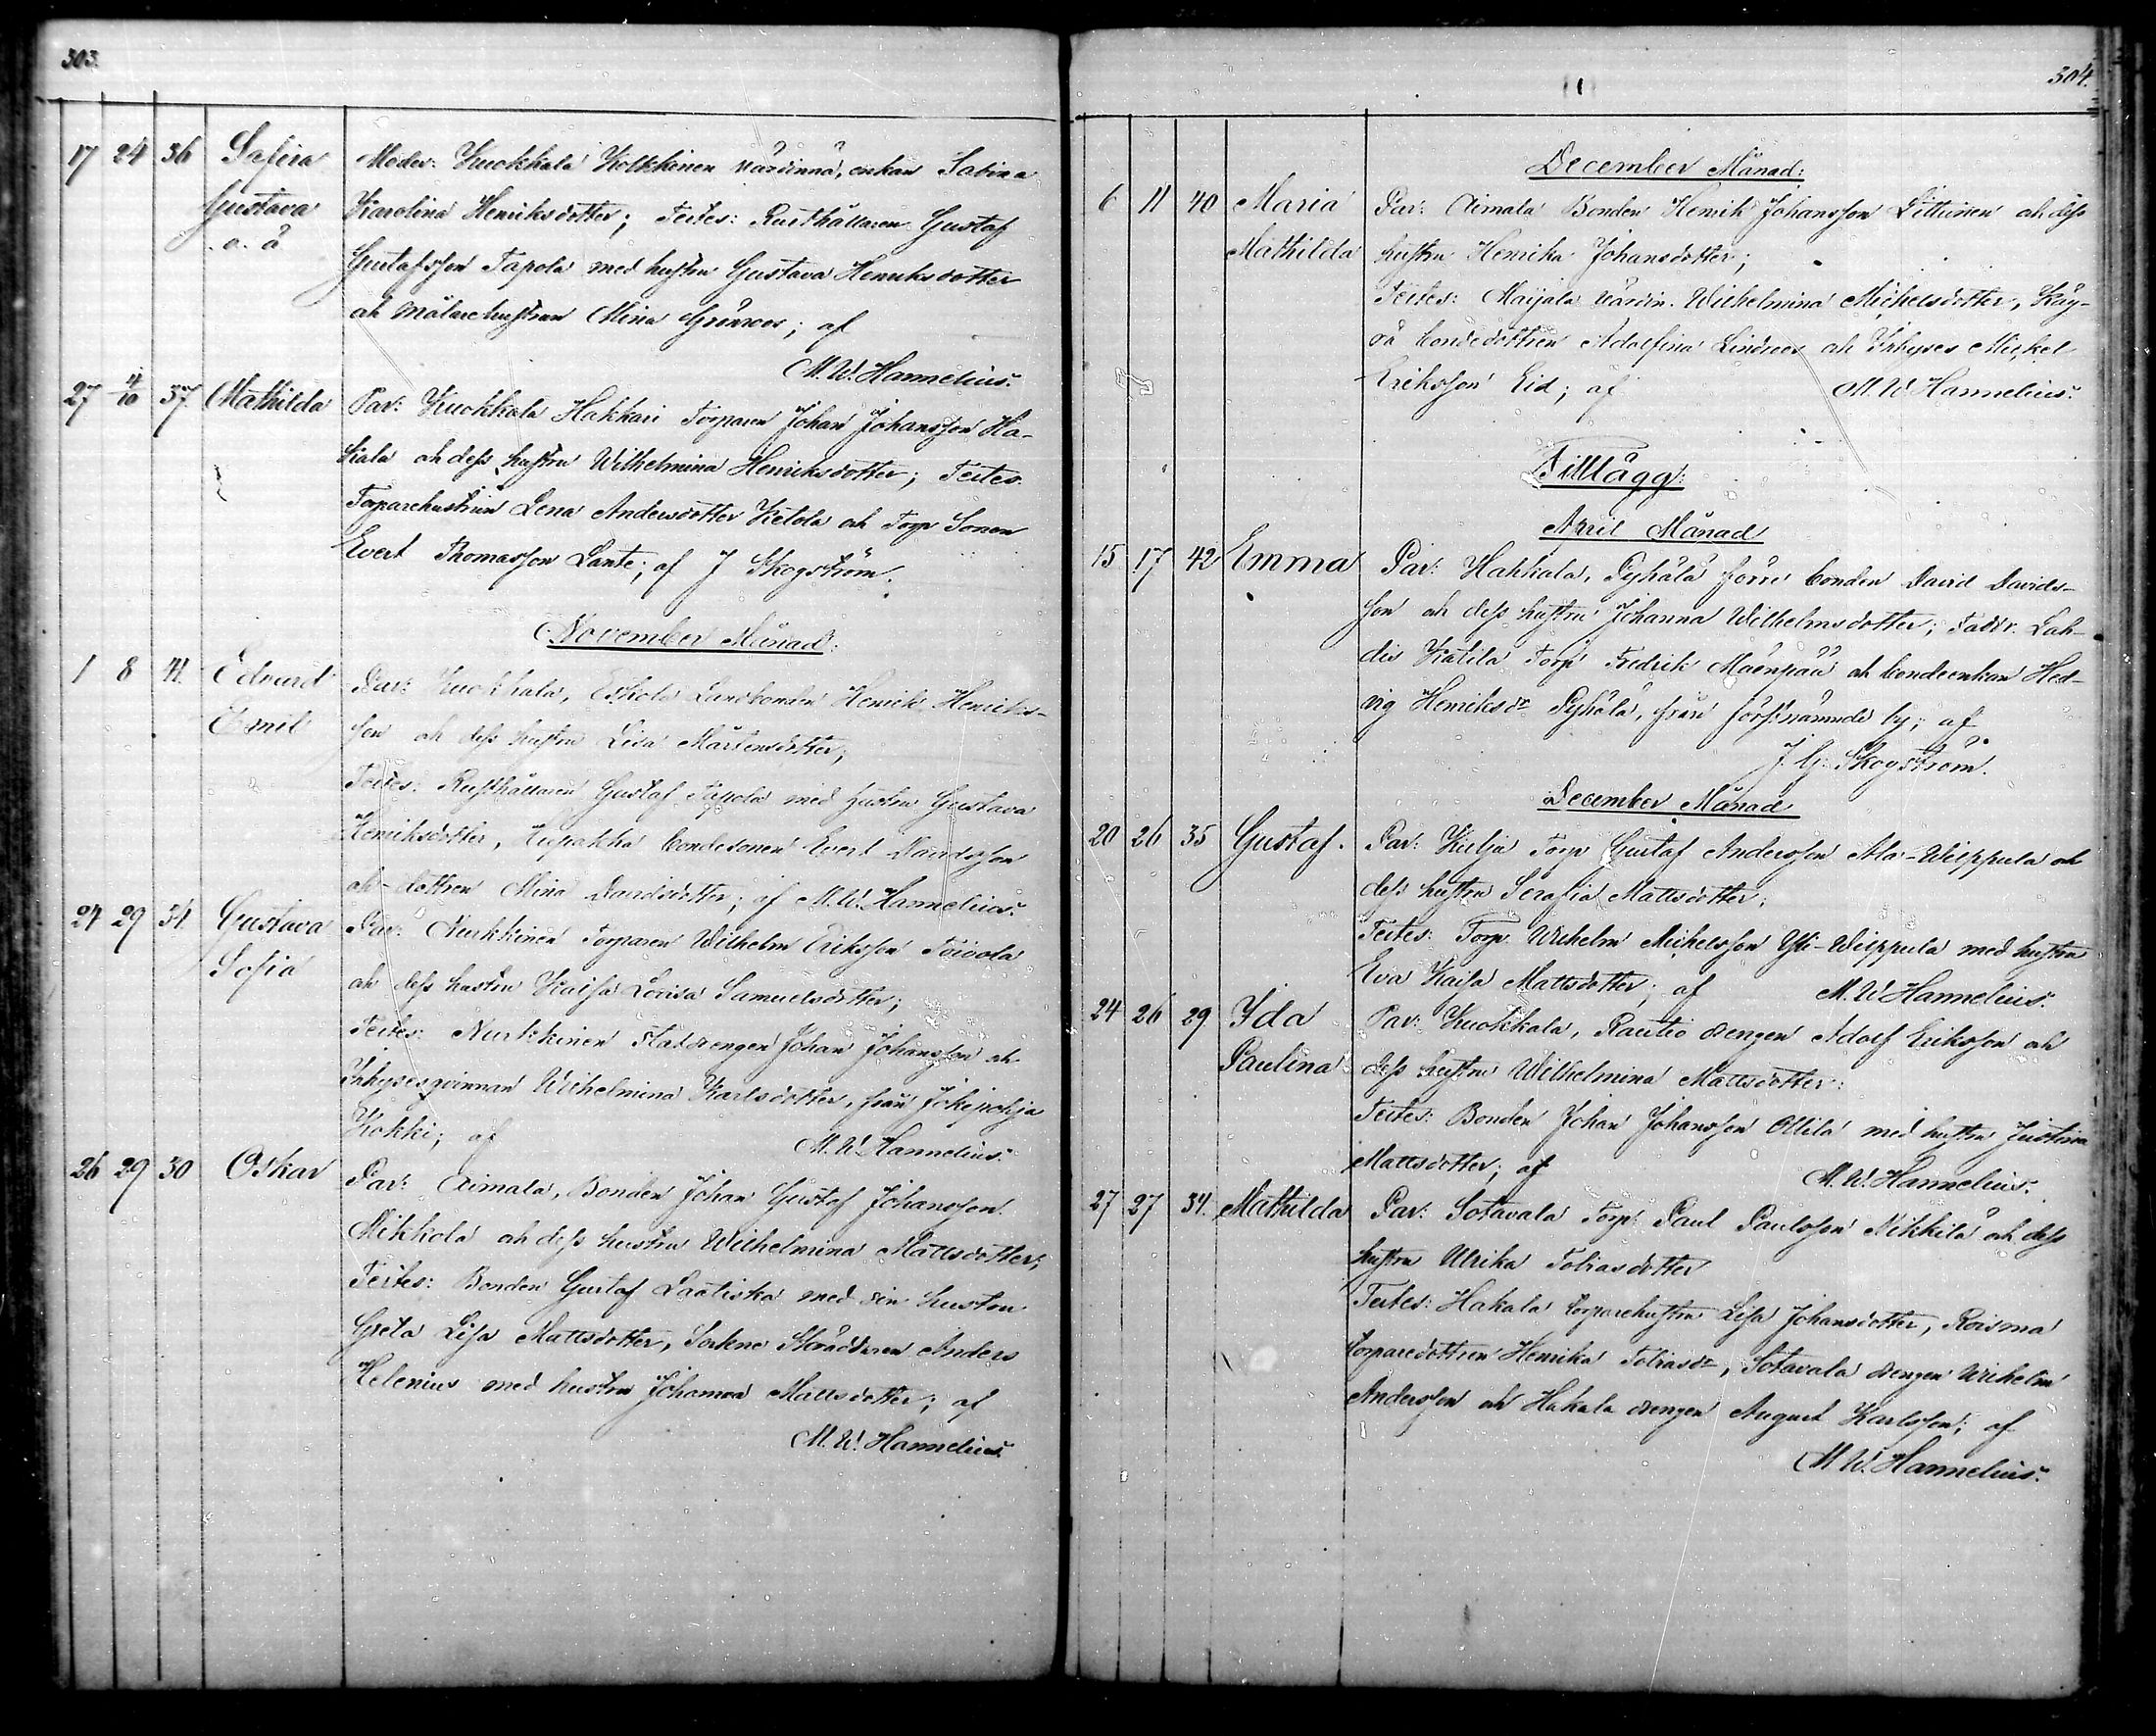 303.
17 24 36 Safira Moder: Kuokkala Kolkkinen värdinnä, enkan Sabina
Gustava Karolina Henriksdotter; Testes: Rusthållaren Gustaf
o. ä Gustafsson Tapola med hustru Gustava Henriksdotter
och målarehustrun Mina Grönroos; af
M. W. Hannelius.
27 4/10 37 Mathilda Par: Kuokkala Hakkari Torparen Johan Johansson Ha-
kala och dess hustru Wilhelmina Henriksdotter; Testes.
Torparehustrun Lena Andersdotter Ketola och Torp. Sonen
Evert Thomasson Lante; af J Skogström.
November Månad:
1 8 41. Edvard Par: Kuokkala, Eskola Landbonden Henrik Henriks-
Emil son och dess hustru Lisa Mårtensdotter;
Testes. Rusthållaren Gustaf Tapola med hustru Gustava
Henriksdotter, bondesonen Evert Davidsson
och dottren Mina Davidsdotter; af M. W. Hannelius.
24 29 34. Gustava Par: Nurkkinen Torparen Wilhelm Eriksson Toivola
Sofia och dess hustru Kaisa Lovisa Samuelsdotter;
Testes: Nurkkinen Statdrengen Johan Johansson och
Inhysesqvinnan Wilhelmina Karlsdotter, från Jokipohja
Kokki; af M. W. Hannelius.
26 29 30 Oskar Par: Aimala, Bonden Johan Gustaf Johansson
Mikkola och dess hustru Wilhelmina Mattsdotter;
Testes: Bonden Gustaf Laatiska med sin hustru
Greta Lisa Mattsdotter, Sockne Skräddaren Anders
Helenius med hustru Johanna Mattsdotter; af
M. W. Hannelius.
304.
December Månad:
6 11 40 Maria Par: Aimala Bonden Henrik Johansson Littuinen och dess
Mathilda hustru Henrika Johansdotter;
Testes: Maijala värdin. Wilhelmina Michelsdotter, Käy-
rä bondedottren Adolfina Lindroos och Inhyses Mickel
Eriksson Eid; af M. W Hannelius.
Tillägg:
April Månad
15 17 42 Emma Par: Hakkala, Pyhälä förre bonden David Davids-
son och dess hustru Johanna Wilhelmsdotter; Faddr. Lah-
dis Katila Torp. Fredrik Mäenpää och bondeenkan Hed-
vig Henriksdr Pyhälä, från förstnämnde by; af
J. G. Skogström.
December Månad
20 26 35 Gustaf. Par: Kulju Torp Gustaf Andersson Ala-Wilppula och
dess hustru Serafia Mattsdotter;
Testes: Torp. Wilhelm Michelsson Yli-Wilppula med hustru
Eva Kaisa Mattsdotter; af M. W Hannelius.
24 26 29 Ida Par: Kuokkala, Rautio drengen Adolf Eriksson och
Paulina dess hustru Wilhelmina Mattsdotter:
Testes: Bonden Johan Johansson Ollila med hustru Justina
Mattsdotter; af M. W. Hannelius.
27 27 34. Mathilda Par: Sotavala Torp. Paul Paulsson Nikkilä och dess
hustru Ulrika Tobiasdotter
Testes: Hakala torparehustru Lisa Johansdotter, Roisma
torparedottren Henrika Tobiasdr, Sotavala drengen Wilhelm
Andersson och Hakala drengen August Karlsson; af
M W. Hannelius.